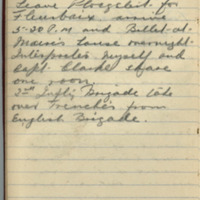 Leave Ploegstert for
Fleurbaix arrive
5-30 P.M and Billet at
Maire's house overnight.
Interpreter myself and
Capt. Clark share
one room
2nd Inf Brigade take
over Trenches from
English Brigade.